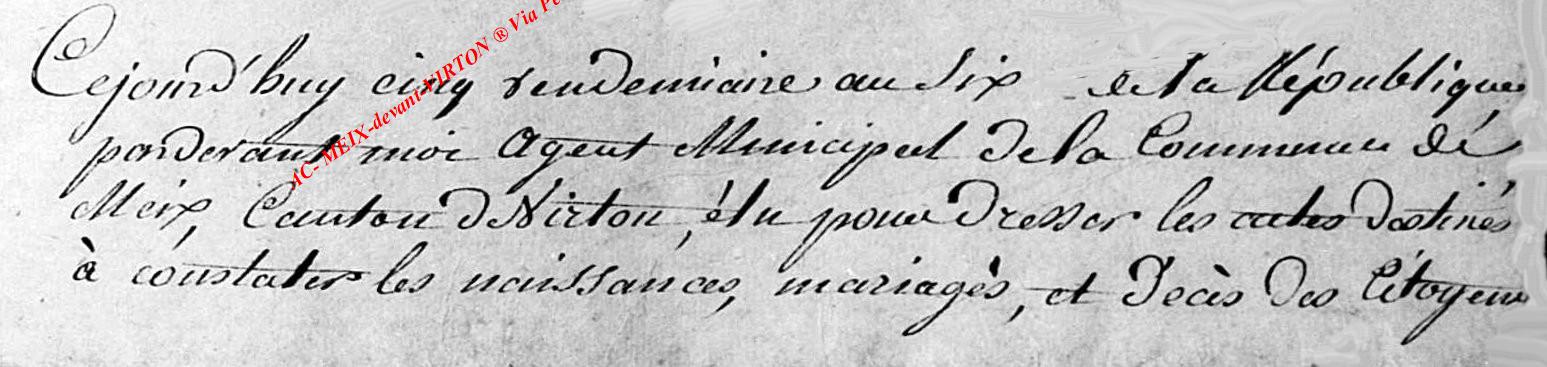 Cejourd'huy cinq vendemiaire an Six de la République
pardevant moi Agent Municipal de la Commune de
Meix, Canton d Virton, élu pour dresser les actes destinés
à constater les naissances, mariagès, et Décès des Citoyens
AC-MEIX-devant-VIRTON ® Via